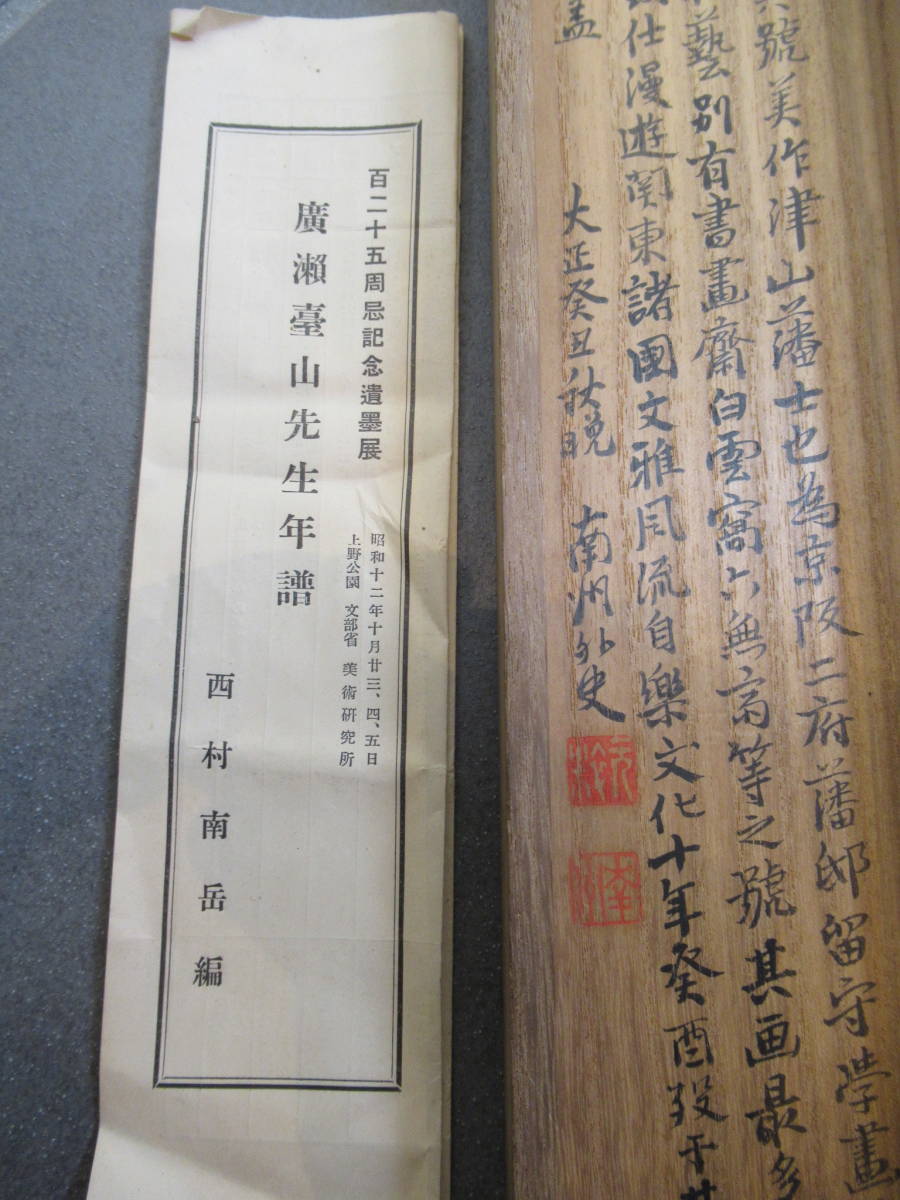 百二十五周忌記念遺墨展
昭和十二年十月廿三、四、五日
上野公園　文部省　美術研究所
廣瀨臺山先生年譜
西村南岳編
號美作津山藩士也為京阪二府藩邸留守學畫
藝別有書畫齋白雲窩六無斎等之號其画最多
仕漫遊関東諸國文雅風流自樂文化十年癸酉歿于
盖
大正癸丑秋晩　南洲外史